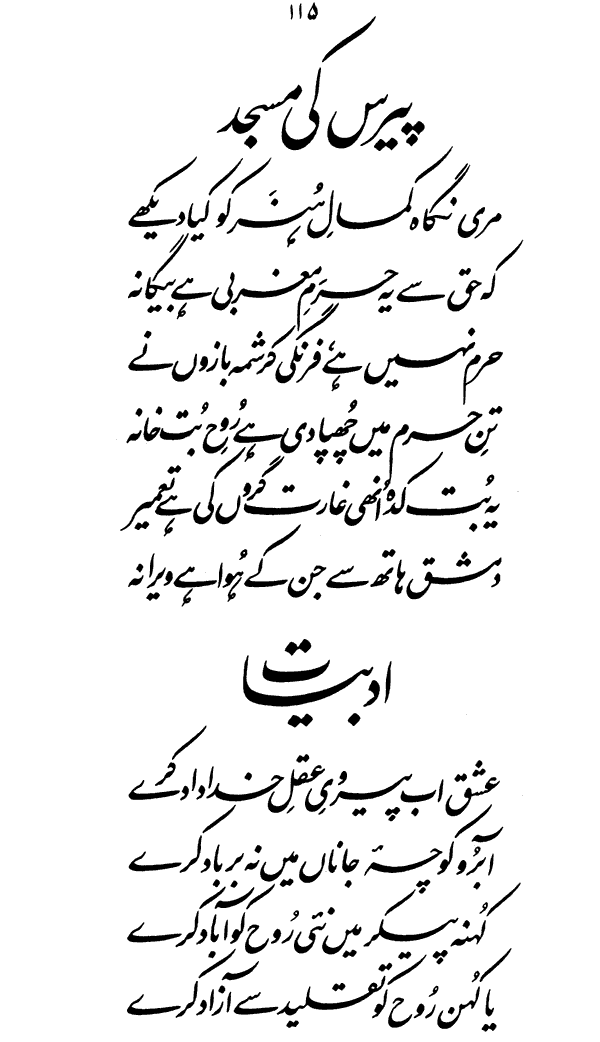 ۱۱۵
پیرس کی مسجد
مری نگاہ کمالِ ہُنَر کو کیا دیکھے
کہ حق سے یہ حرَمِ مغربی ہے بیگانہ
حرم نہیں ہے، فرنگی کرشمہ بازوں نے
تنِ حرم میں چُھپا دی ہے رُوحِ بُت خانہ
یہ بُت کدہ اُنھی غارت گروں کی ہے تعمیر
دمشق ہاتھ سے جن کے ہُوا ہے ویرانہ
ادبیات
عشق اب پیرویِ عقلِ خداداد کرے
آبُرو کوچۂ جاناں میں نہ برباد کرے
کُہنہ پیکر میں نئی رُوح کو آباد کرے
یا کُہن رُوح کو تقلید سے آزاد کرے